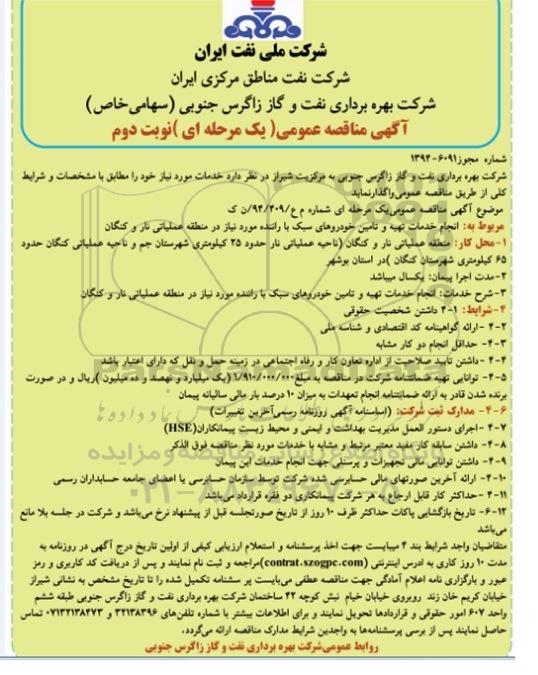 شرکت ملی نفت ایران
شرکت نفت مناطق مرکزی ایران
شرکت بهره برداری نفت و گاز زاگرس جنوبی (سهامی‌خاص)
آگهی مناقصه عمومی( یک مرحله ای )نوبت دوم
شماره مجوز۶۰۹۱-۱۳۹۴
شرکت بهره برداری نفت و گاز زاگرس جنوبی به مرکزیت شیراز در نظر دارد خدمات مورد نیاز خود را مطابق با مشخصات و شرایط
کلی از طریق مناقصه عمومی‌واگذارنماید
موضوع آگهی مناقصه عمومی‌یک مرحله ای شماره م ع/۹۴/۴۰۹/ن ک
مربوط به: انجام خدمات تهیه و تامین خودروهای سبک با راننده مورد نیاز در منطقه عملیاتی نار و کنگان
۱-محل کار: منطقه عملیاتی نار و کنگان (ناحیه عملیاتی نار حدود ۲۵ کیلومتری شهرستان جم و ناحیه عملیاتی کنگان حدود
۶۵ کیلومتری شهرستان کنگان )در استان بوشهر
۲-مدت اجرا پیمان: یکسال میباشد
۳-شرح خدمات: انجام خدمات تهیه و تامین خودروهای سبک با راننده مورد نیاز در منطقه عملیاتی نار و کنگان
۴-شرایط: ۱-۴ داشتن شخصیت حقوقی
۲-۴ -ارائه گواهینامه کد اقتصادی و شناسه ملی
۳-۴- حداقل انجام دو کار مشابه
۴-۴- داشتن تایید صلاحیت از اداره تعاون کار و رفاه اجتماعی در زمینه حمل و نقل که دارای اعتبار باشد
۵-۴- توانایی تهیه ضمانتنامه شرکت در مناقصه به مبلغ۱/۹۱۰/۰۰۰/۰۰۰ (یک میلیارد و نهصد و ده میلیون )ریال و در صورت
برنده شدن قادر به ارائه ضمانتنامه انجام تعهدات به میزان ۱۰ درصد بار مالی سالیانه پیمان
۶-۴- مدارک ثبت شرکت: (اساسنامه آگهی روزنامه رسمی‌آخرین تغییرات)
۷-۴-اجرای دستور العمل مدیریت بهداشت و ایمنی و محیط زیست پیمانکاران(HSE)
۸-۴- داشتن سابقه کار مفید معتبر مرتبط و مشابه با خدمات مورد نظر مناقصه فوق الذکر
۹-۴- داشتن توانایی مالی تجهیزات و پرسنلی جهت انجام خدمات این پیمان
۱۰-۴- ارائه آخرین صورتهای مالی حسابرسی شده شرکت توسط سازمان حسابرسی یا اعضای جامعه حسابداران رسمی
۱۱-۴-حداکثر کار قابل ارجاع به هر شرکت پیمانکاری دو فقره قرارداد می‌باشد
۱۲-۶- تاریخ بازگشایی پاکات حداکثر ظرف ۱۰ روز از تاریخ صورتجلسه قبل از پیشنهاد نرخ می‌باشد و شرکت در جلسه بلا مانع
می‌باشد
متقاضیان واجد شرایط بند ۴ میبایست جهت اخذ پرسشنامه و استعلام ارزیابی کیفی از اولین تاریخ درج آگهی در روزنامه به
مدت ۱۰ روز کاری به ادرس اینترنتی (contrat.szogpc.com)مراجعه و ثبت نام نمایند و پس از دریافت کد کاربری و رمز
عبور و بارگزاری نامه اعلام آمادگی جهت مناقصه عطفی می‌بایست پر سشنامه تکمیل شده را تا تاریخ مشخص به نشانی شیراز
خیابان کریم خان زند روبروی خیابان خیام نبش کوچه ۴۲ ساختمان شرکت بهره برداری نفت و گاز زاگرس جنوبی طبقه ششم
واحد ۶۰۷ امور حقوقی و قراردادها تحویل نمایند و برای اطلاعات بیشتر با شماره تلفن‌های ۳۲۱۳۸۳۹۶ و ۰۷۱۳۲۱۳۸۴۷۳ تماس
حاصل نمایند پس از برسی پرسشنامه‌ها به واجدین شرایط مدارک مناقصه ارائه می‌گردد.
روابط عمومی‌شرکت بهره برداری نفت و گاز زاگرس جنوبی